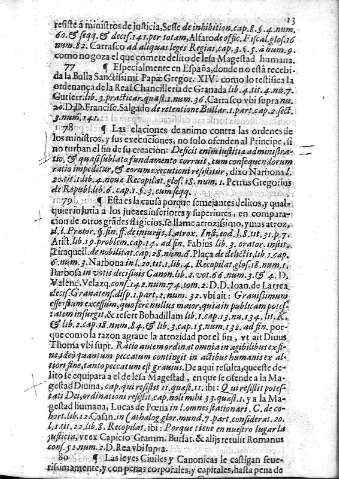 13
resiste à ministros de justicia, Sesse de inhibition, cap. 8. §. 4. num.
60. & seqq. & decis. 141. per totam, Alfaro de offic. Fiscal. glos. 16
num. 82. Carrasco ad aliquas leges Regias, cap. 3. §. 5. à num. 9.
como no goza el que comete delito de lesa Magestad humana.
77 ¶ Especialmente en España, donde no està recebi-
da la Bulla Sanctissimi Papæ Gregor. XIV. como lo testifica la
ordenança de la Real Chancilleria de Granada lib. 4. tit. 4. nu. 7.
Gutierr. lib. 3. practicar. quæst. 1. num. 36. Carrasco vbi supra nu.
20. D. D. Francisc. Salgado de retentione Bullar. 1. part. cap. 2. sect.
3. num. 141.
78 ¶ Las elaciones de animo contra las ordenes de
los ministros, y sus execuciones, no solo ofenden al Principe, si
no turban el fin de su creacion: Deficit enim iustitiæ administra-
tio, & quasi sublato fundamento corruit, cum consequendorum
ratio impeditur, & eorum executioni resistitur, dixo Narbona l.
20. tit. 1. lib. 4. nouæ Recopilat. glos. 18. num. 1. Petrus Gregorius
de Republ. lib. 6. cap. 1. §. 3. cum seqq.
79 ¶ Esta es la causa porque semejantes delitos, y qual-
quier injuria a los juezes inferiores y superiores, en compara-
cion de otros grādes sligicios, se llame atrozissimo, y mas atroz,
d. l. Prætor, §. fin. ff. de iniurijs, l. atrox. Inst. eod. l. 8. tit. 31. p. 7.
Arist. lib. 19. problem. cap. 15. ad fin. Fabius lib. 3. orator. instit.
Tiraquell. de nobilitat. cap. 28. num. 6. Plaça de delictis, lib. 1. cap.
6. num. 3. Narbona in l. 20. tit. 1. lib. 4. Recopilat. glos. 18. num. 1.
Barbosa in votis decisiuis Canon. lib. 2. vot. 66. num. 3. & 4. D.
Valenç. Velazq. cons. 142. num. 74. tom. 2. D. D. Ioan. de Larrea
decis. Granatens. disp. 1. part. 2. num. 32. vbi ait: Grauissimum
esse ipsum excessum, quo fere nullus maior, qui ita in publicam potes-
tatem insurgit, & refert Bobadillam lib. 1. cap. 13. nu. 134. lit. K.
& lib. 2. cap. 18. num. 84. & lib. 3. cap. 15. num. 132. ad fin. por-
que como la razon agraue la atrozidad por el fin, vt ait Diuus
Thoma vbi supr. Ratio autem ordinat omnia in agibilibus ex fi-
ne, ideò quantum peccatum contingit in actibus humanis ex al-
tiori fine, tanto peccatum est grauius. De aqui resulta, que este de-
lito se equipara a el de lesa Magestad, en que se ofende a la Ma-
gestad Diuina, cap. qui resistit 11. quæst. 11. ibi: Qui resistit potes-
tati Dei, ordinationi resistit, cap. noli mihi 33. quæst. 1. y a la Ma-
gestad humana, Lucas de Pœna in l. omnes stationari. C. de co-
hort. lib. 12. Casan. in Cathalog. glor. mund. 7. part. considerat. 20.
l. 1. tit. 22. lib. 8. Recopilat. ibi: Porque tiene en nuestro lugar la
justicia, vt ex Capicio Gramm. Bursat. & alijs retulit Romanus
cons. 32. num. 2. D. Rea vbi supra.
80 ¶ Las leyes Ciuiles y Canonicas le castigan seue-
rissimamente, y con penas corporales, y capitales, hasta pena do